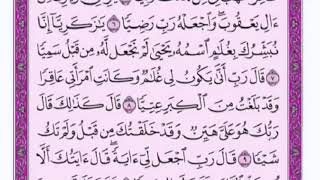 ءَالِ يَعْقُوبَ وَٱجْعَلْهُ رَبِّ رَضِيًّا ٦ يَٰزَكَرِيَّآ إِنَّا
نُبَشِّرُكَ بِغُلَٰمٍ ٱسْمُهُۥ يَحْيَىٰ لَمْ نَجْعَل لَّهُۥ مِن قَبْلُ سَمِيًّا
٧ قَالَ رَبِّ أَنَّىٰ يَكُونُ لِى غُلَٰمٌ وَكَانَتِ ٱمْرَأَتِى عَاقِرًا
وَقَدْ بَلَغْتُ مِنَ ٱلْكِبَرِ عِتِيًّا ٨ قَالَ كَذَٰلِكَ قَالَ
رَبُّكَ هُوَ عَلَىَّ هَيِّنٌ وَقَدْ خَلَقْتُكَ مِن قَبْلُ وَلَمْ تَكُ
شَيْـًٔا ٩ قَالَ رَبِّ ٱجْعَل لِّىٓ ءَايَةً قَالَ ءَايَتُكَ أَلَّا